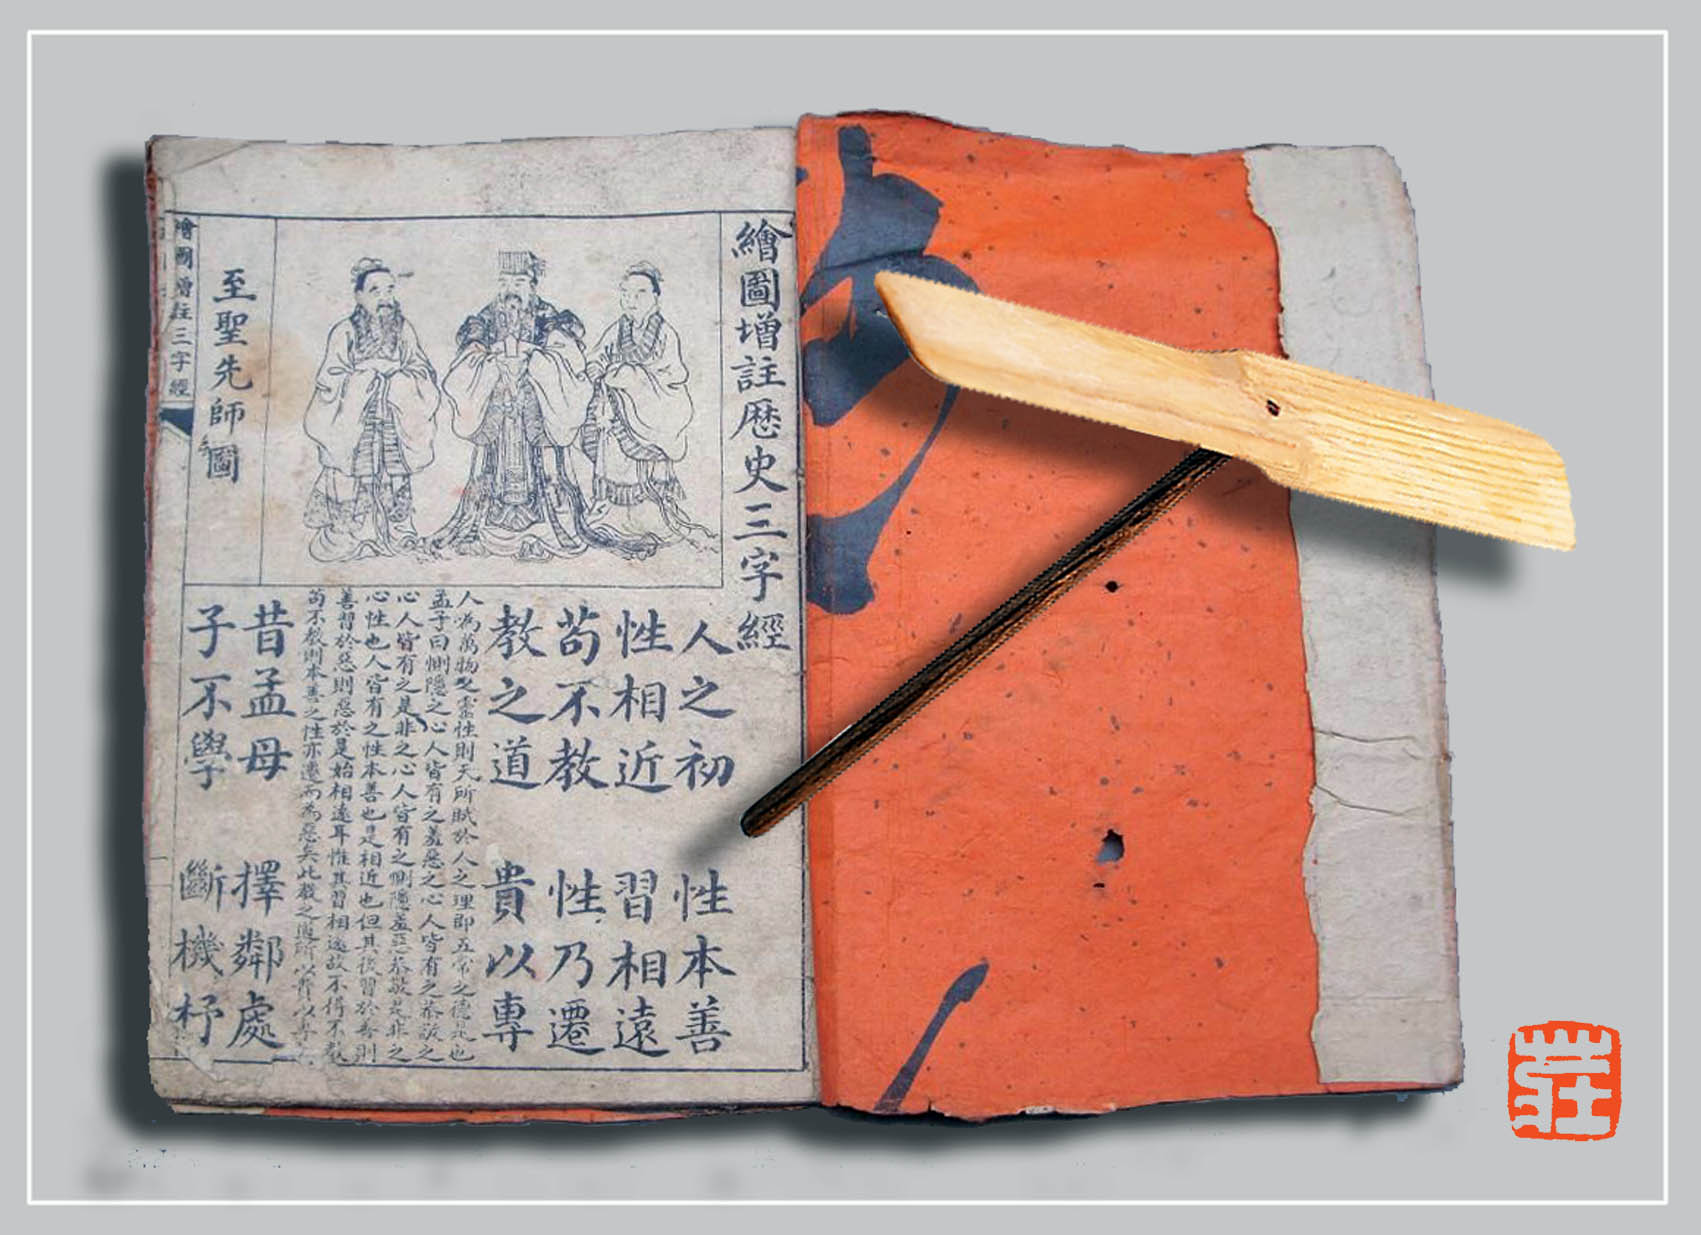 繪圖增註歷史三字經
人之初 性本善
性相近 習相遠
苟不教 性乃遷
教之道 貴以專
人為萬物之靈性則天所賦於人之理即五常之德是也
孟子曰惻隱之心人皆有之羞惡之心人皆有之恭敬之
心人皆有之是非之心人皆有之惻隱羞惡恭敬是非之
心性也人皆有之性本善也是相近也但其後習於善則
善習於惡則惡於是始相遠耳惟其習相遠故不得不教
苟不教則本善之性亦遷而為惡矣此教之道所以貴以專
昔孟母 擇鄰處
子不學 斷機杼
至聖先師圖
繪圖增註三字經
莊